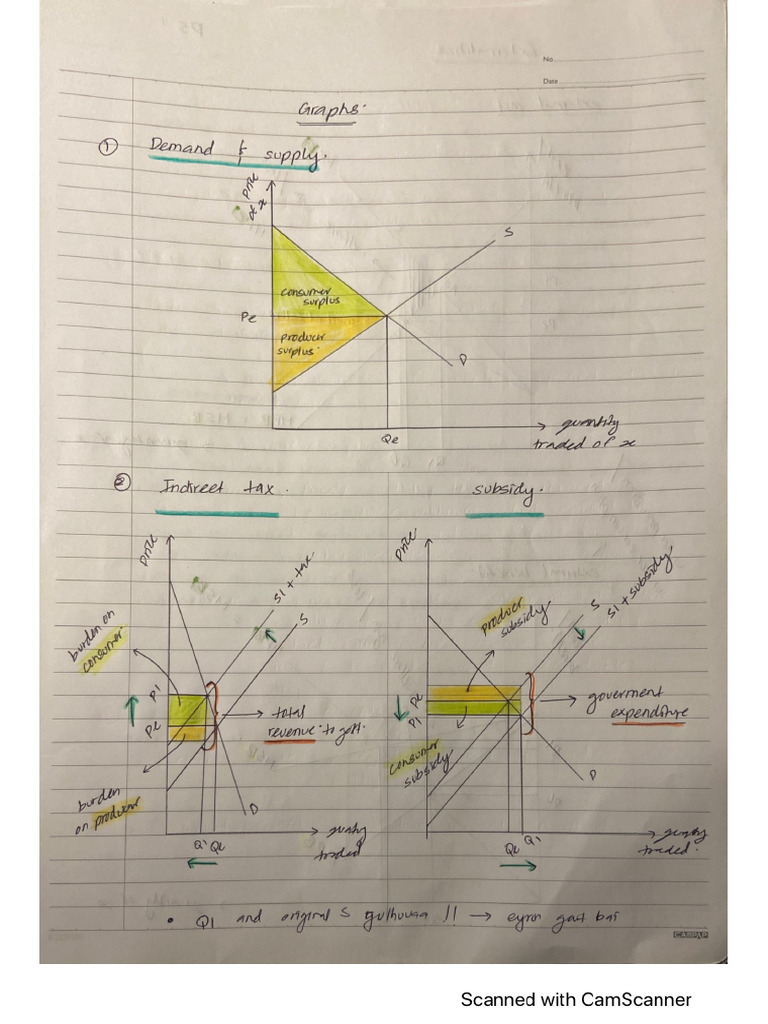 No.
Date
Graphs.
① Demand & supply.
price of x
S
consumer surplus
Pe
producer surplus.
D
Qe
quantity
traded of x
② Indirect tax.
subsidy.
price
S1 + tax
S
burden on consumer.
P1
Pe
total
revenue to govt.
burden
on producer
D
Q1 Qe
quantity
traded
price
producer
subsidy
S
S1 + subsidy
Pe
P1
goverment
expenditure
consumer
subsidy
D
Qe Q1
quantity
traded.
• Q1 and original S !! →
Scanned with CamScanner